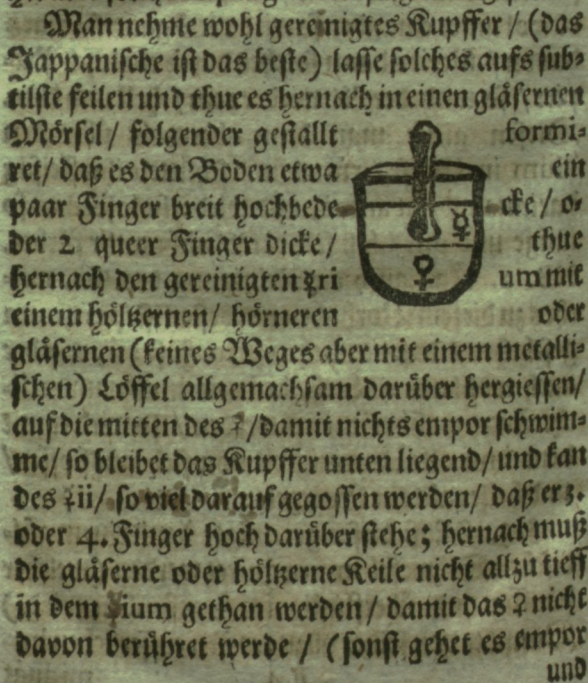 Man nehme wohl gereinigtes Kupffer / (das
Jappanische ist das beste) lasse solches aufs sub-
tilste feilen und thue es hernach in einen gläsernen
Mörsel / folgender gestallt formi-
ret / daß es den Boden etwa ein
paar Finger breit hochbede- cke / o-
der 2 queer Finger dicke / thue
hernach den gereinigten ☿ri um mit
einem höltzernen / hörneren oder
gläsernen (keines Weges aber mit einem metalli-
schen) Löffel allgemachsam darüber hergiessen /
auf die mitten des ♀ / damit nichts empor schwim-
me / so bleibet das Kupffer unten liegend / und kan
des ☿ii / so viel darauf gegossen werden / daß er 3.
oder 4. Finger hoch darüber stehe; hernach muß
die gläserne oder höltzerne Keile nicht allzu tieff
in dem ☿ium gethan werden / damit das ♀ nicht
davon berühret werde / (sonst gehet es empor
und